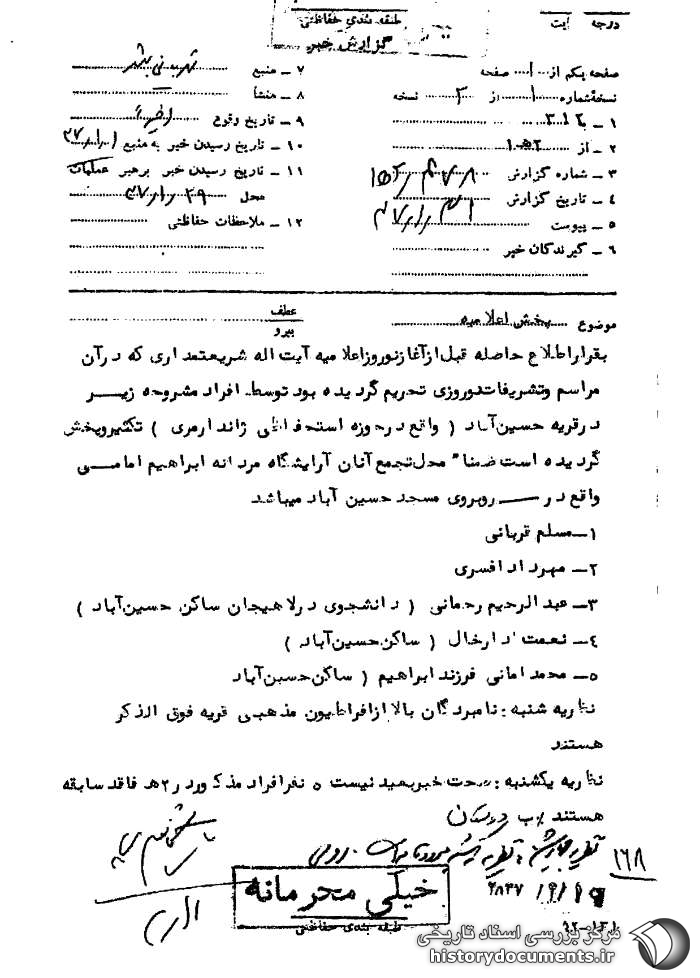 درجه ایت
طبقه بندی حفاظتی
گزارش خبر
صفحه یکم از ۱ صفحه
نسخه شماره ۱ از ۲ نسخه
۱ ـ به ۳۱۲
۲ ـ از ۲ﻫ۱
۳ ـ شماره گزارش
۴ ـ تاریخ گزارش
۵ ـ پیوست
۶ ـ گیرندگان خبر
۷ ـ منبع
۸ ـ منشأ
۹ ـ تاریخ وقوع اخیراً
۱۰ ـ تاریخ رسیدن خبر به منبع
۱۱ ـ تاریخ رسیدن خبر برهبر عملیات
محل
۱۲ ـ ملاحظات حفاظتی
موضوع پخش اعلامیه
عطف
پیرو
بقرار اطلاع حاصله قبل از آغاز نوروز اعلامیه آیت اله شریعتمداری که در آن
مراسم وتشریفات نوروزی تحریم گردیده بود توسط افراد مشروحه زیـــر
در قریه حسین آباد ( واقع در حوزه استحفاظی ژاندارمری ) تکثیر وپخش
گردیده است ضمنا" محل تجمع آنان آرایشگاه مردانه ابراهیم امامـــی
واقع در ـــ روبروی مسجد حسین آباد میباشد
۱ـ مسلم قربانی
۲ـ مهرداد افسری
۳ـ عبدالرحیم رحمانی ( دانشجوی در لاهیجان ساکن حسین‌آباد )
۴ـ نعمت دارخال ( ساکن حسین‌آباد )
۵ـ محمد امانی فرزند ابراهیم ( ساکن حسین‌آباد
نظریه شنبه : نامبردگان بالا از افراطیون مذهبی قریه فوق الذکر
هستند
نظریه یکشنبه : صحت خبر بعید نیست ۵ نفر افراد مذکور در ۲ﻫ فاقد سابقه
هستند
۱۶۸
خیلی محرمانه
طبقه بندی حفاظتی
۹۲-۱۳۱
مرکز بررسی اسناد تاریخی
historydocuments.ir